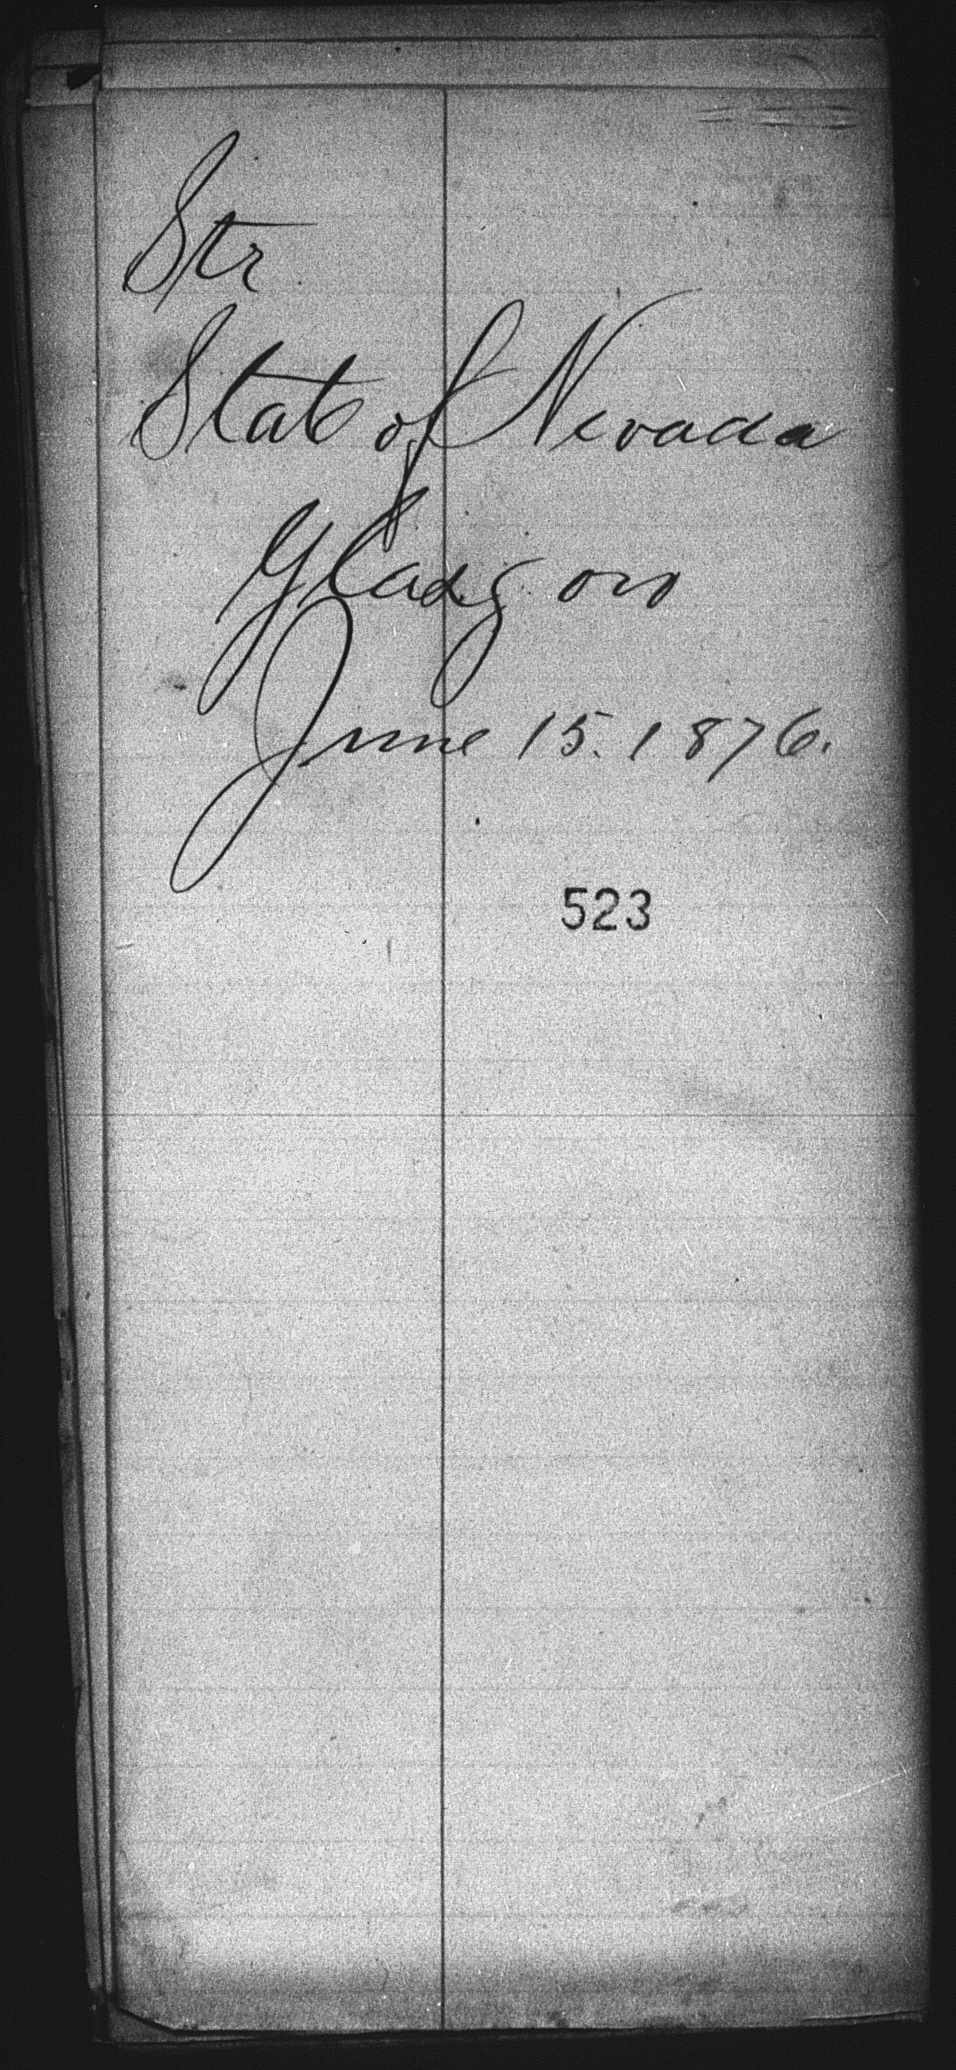 Str
State of Nevada
Glasgow
June 15. 1876.
523